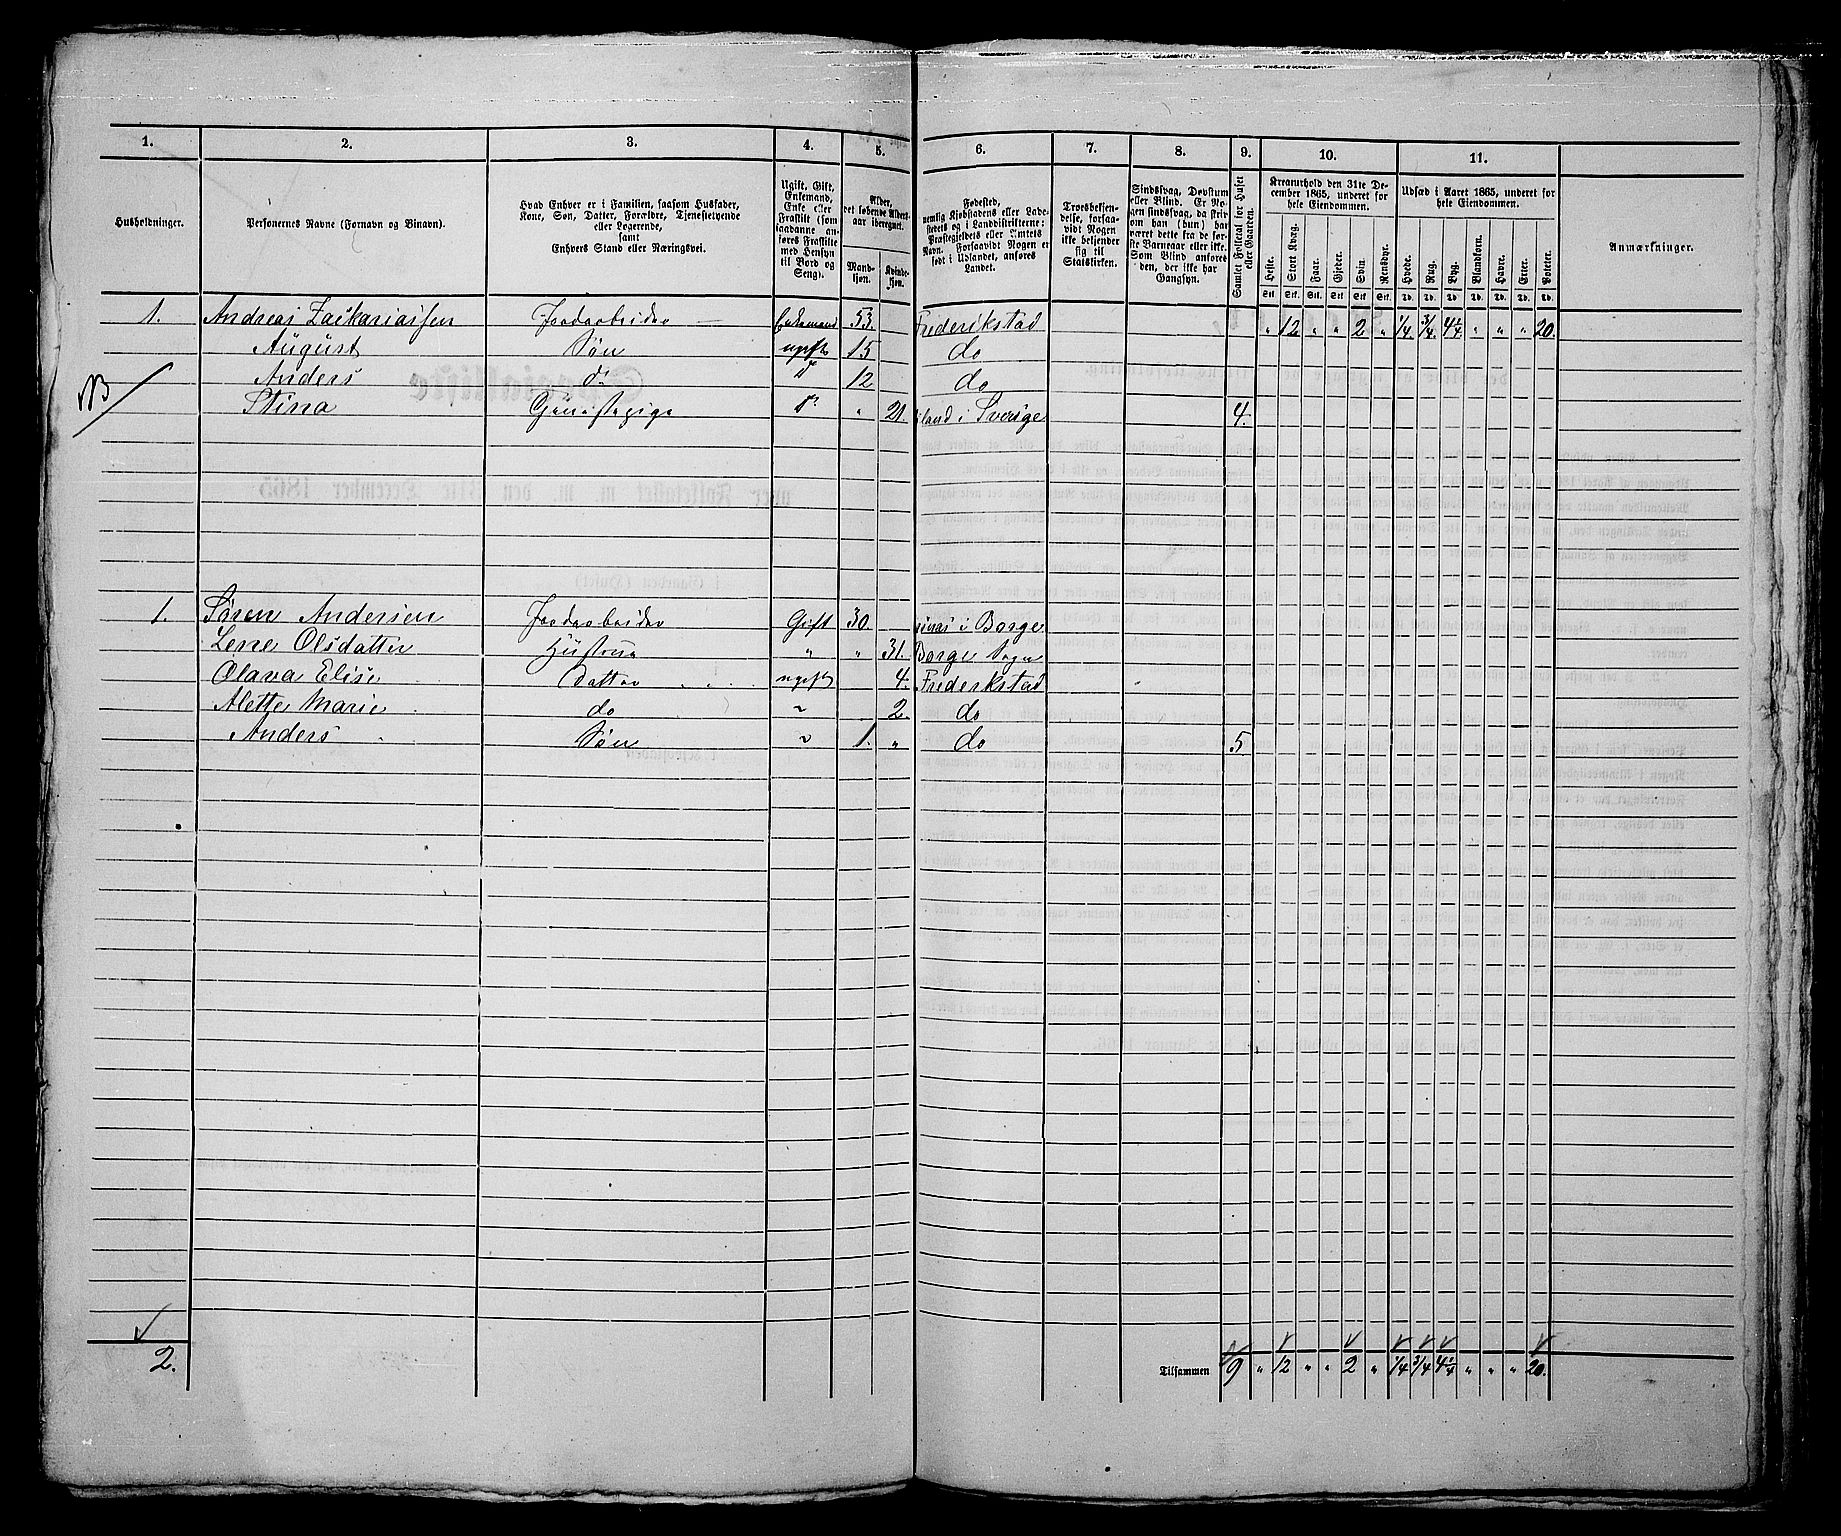 1. 2. 3. 4. 5. 6. 7. 8. 9. 10. 11.
Husholdninger.
Personernes Navne (Fornavn og Binavn).
Hvad Enhver er i Familien, saasom Husfader, Kone, Søn, Datter, Forældre, Tjenestetyende eller Logerende, samt Enhvers Stand eller Næringsvei.
Ugift, Gift, Enkemand, Enke eller Fraskilt (som saadanne anføres Fraskilte med Hensyn til Bord og Seng).
Alder, det løbende Aldersaar iberegnet.
Mandkjøn. Kvindekjøn.
Fødested, nemlig Kjøbstadens eller Ladestedets og i Landdistrikterne: Præstegjeldets eller Amtets Navn. Forsaavidt Nogen er født i Udlandet, anføres Landet.
Troesbekjendelse, forsaavidt Nogen ikke bekjender sig til Statskirken.
Sindssvag, Døvstum eller Blind. Er Nogen sindssvag, da skriv om han (hun) har været dette fra de første Barneaar eller ikke. Som Blind anføres den, der ikke har Gangsyn.
Samlet Folketal for Huset eller Gaarden.
Kreaturhold den 31te December 1865, underet for hele Eiendommen.
Heste. Stort Kvæg. Faar. Gjeder. Svin. Rensdyr.
Stk. Stk. Stk. Stk. Stk. Stk.
Udsæd i Aaret 1865, underet for hele Eiendommen.
Hvede. Rug. Byg. Blandkorn. Havre. Erter. Poteter.
Td. Td. Td. Td. Td. Td. Td.
Anmærkninger.
1. Andreas Zackariassen Jordarbeider Enkemand 53. Frederikstad " 12 " " 2 " 1/4 3/4 4 1/4 " " " 20.
August Søn ugift 15 do
Anders do 12 do
Stina 21. i Sverige 4.
1. Søren Andersen Jordarbeider Gift 30. i Borge
Lene Olsdatter Hustru " " 31. Borge Sogn
Olava Elise Datter ugift 4. Frederikstad
Alette Marie do 2. do
Anders Søn 1. " do 5
2.
Tilsammen 9 " 12 " " 2 " 1/4 3/4 4 1/4 " " " 20.